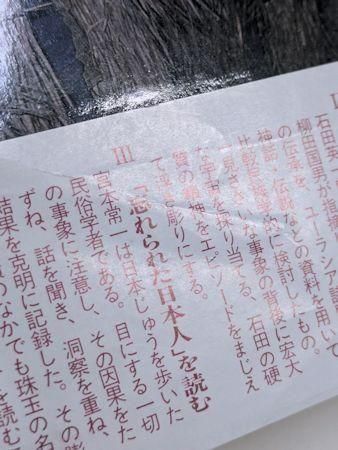 石田英一
柳田国男が指摘
の伝承を、ユーラシア諸
神話・伝説などの資料を用いて
比較民族学的に検討したもの。
見ささいな事象の背後に宏大
な宇宙を探り当てる、石田の硬
質の精神をエピソードをまじえ
て浮き彫りにする。
III 『忘れられた日本人』を読む
宮本常一は日本じゅうを歩いた
民俗学者である。目にする一切
の事象に注意し、その因果をた
ずね、話を聞き、洞察を重ね、
結果を克明に記録した。その膨
のなかでも珠玉の名
を読む